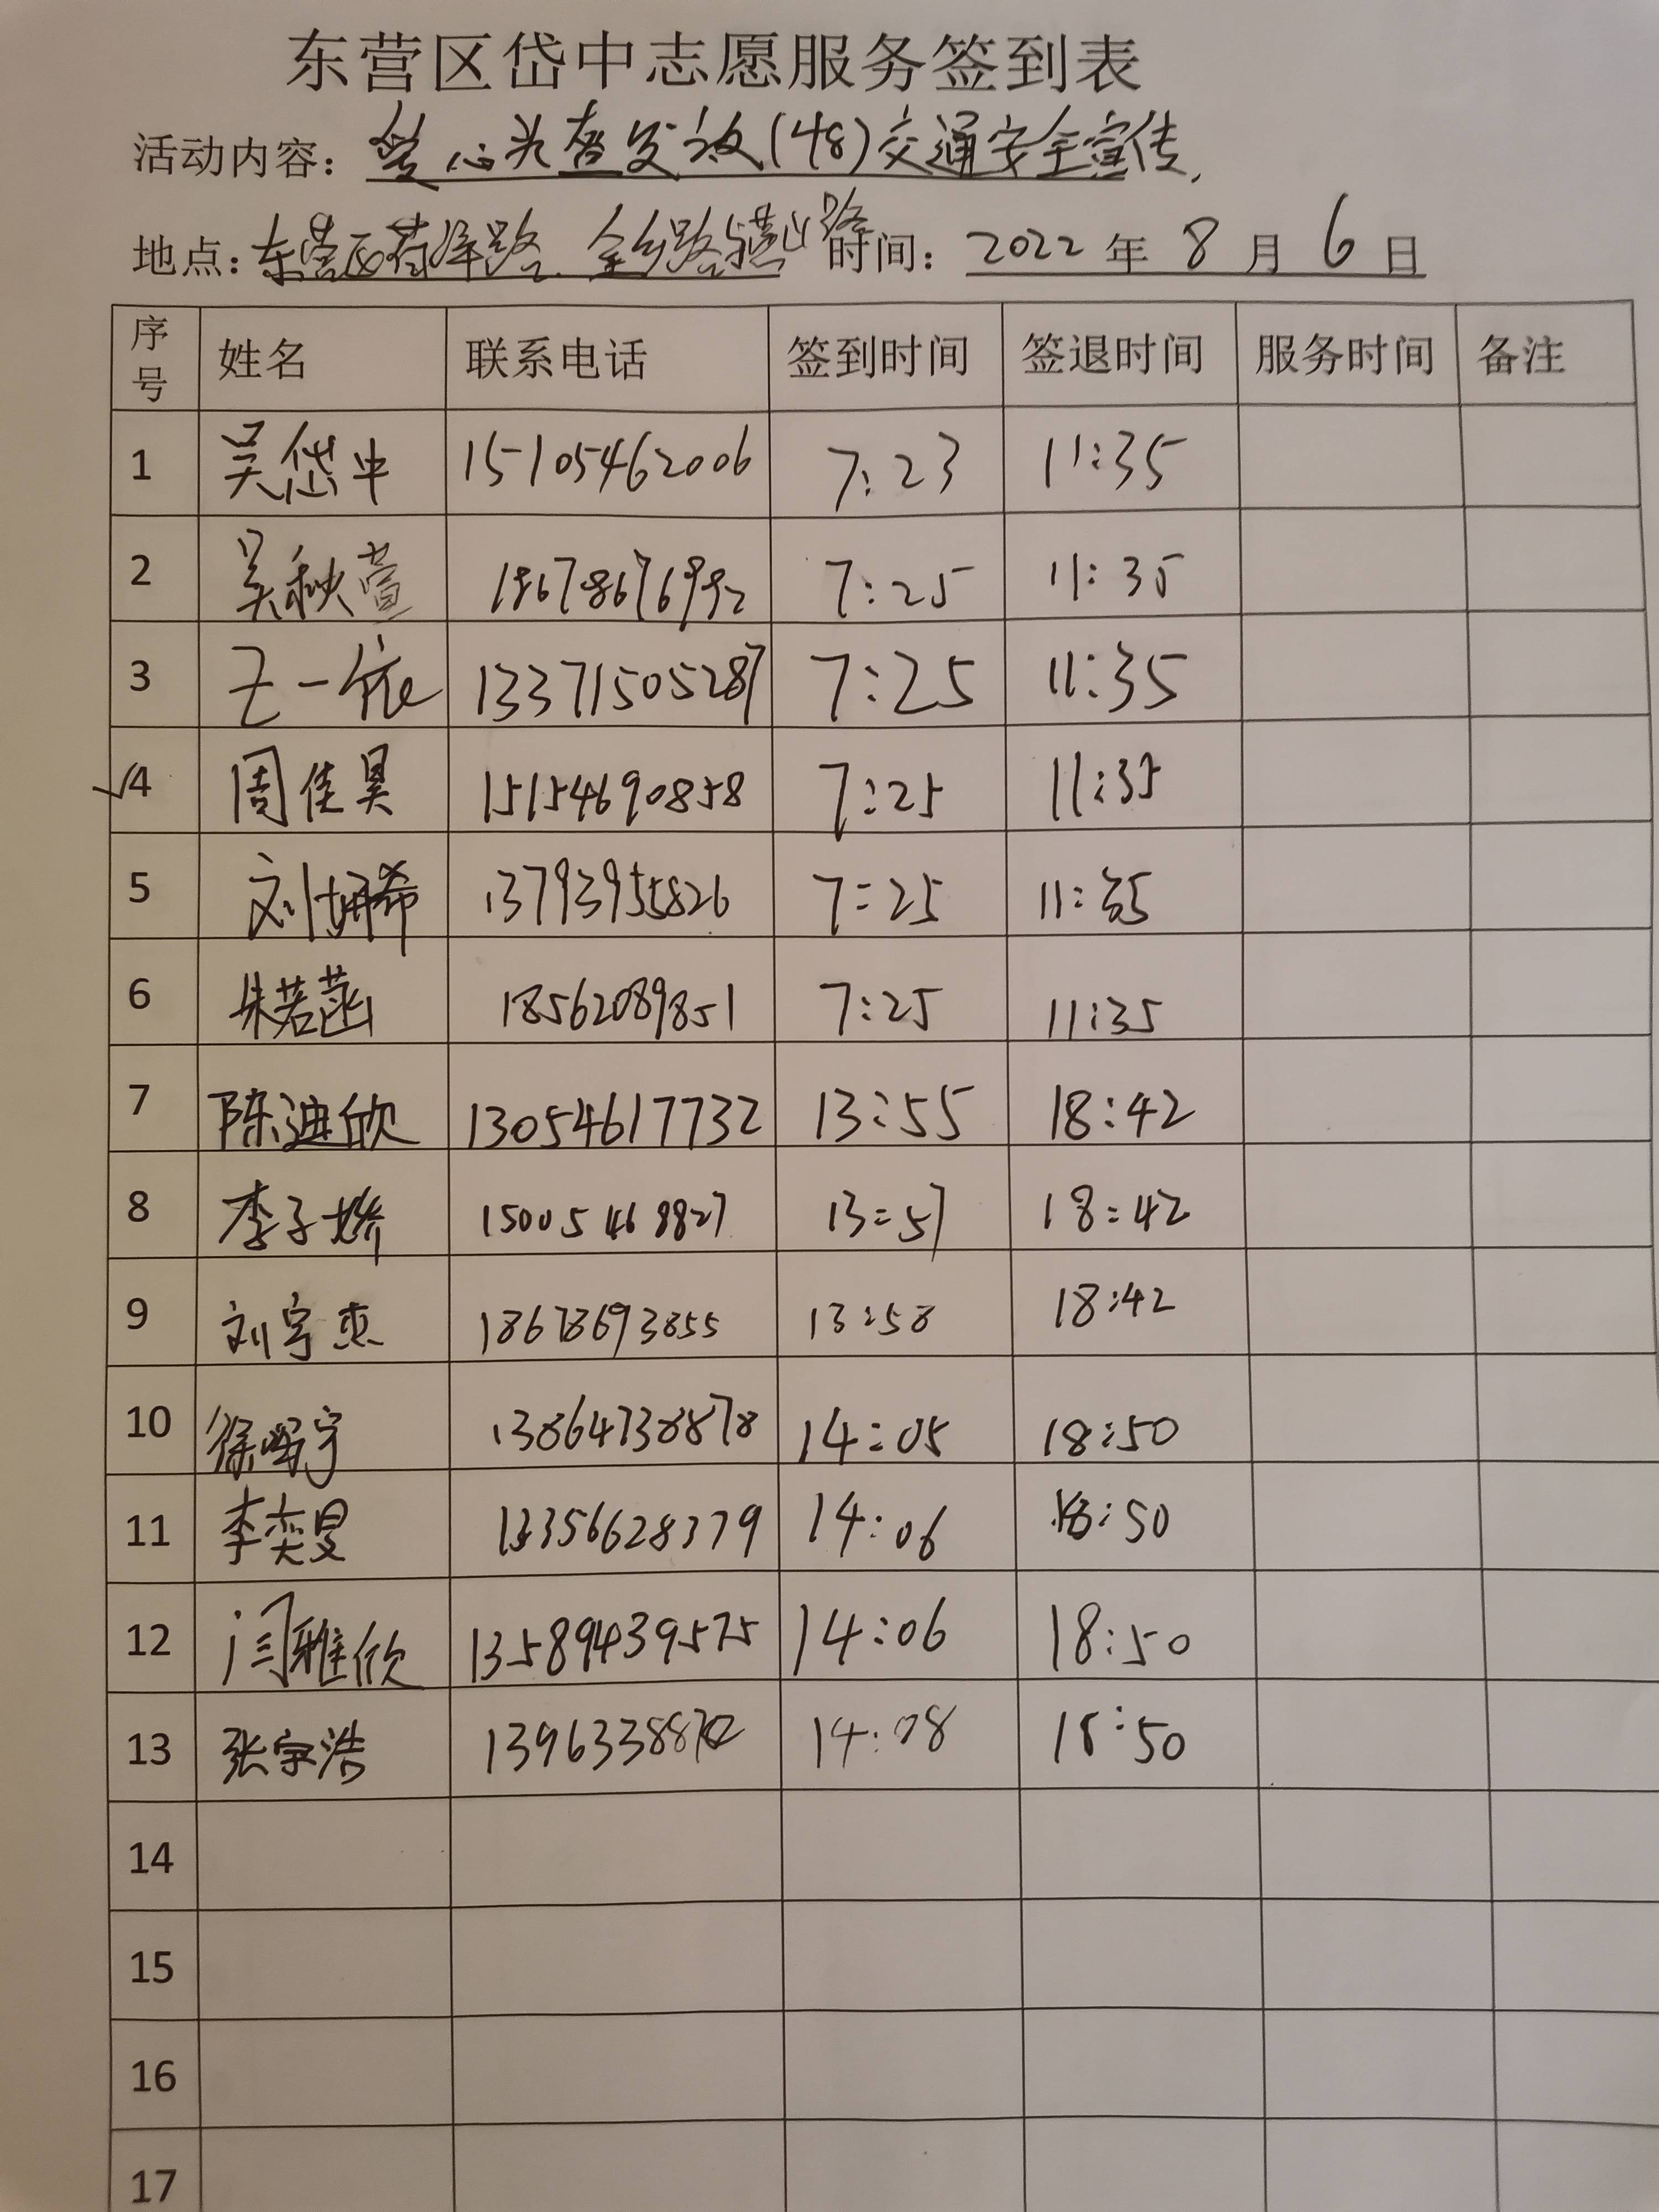 东营区岱中志愿服务签到表
活动内容：爱心头盔发放(48)交通安全宣传,
地点：东营区菏泽路、金乡路与营山路 时间：2022年8月6日
序号 姓名 联系电话 签到时间 签退时间 服务时间 备注
1 吴岱中 15105462006 7:23 11:35
2 吴秋萱 18678676992 7:25 11:35
3 王一依 13371505287 7:25 11:35
4 周佳昊 15154690858 7:25 11:35
5 刘姗希 13793955826 7:25 11:35
6 朱若菡 18562089851 7:25 11:35
7 陈迪欣 13054617732 13:55 18:42
8 李子娇 15005468827 13:57 18:42
9 刘宇杰 18678693855 13:58 18:42
10 徐鸣宇 13864738878 14:05 18:50
11 李奕旻 13356628379 14:06 18:50
12 闫雅欣 13589439575 14:06 18:50
13 张宗浩 14:08 18:50
14
15
16
17